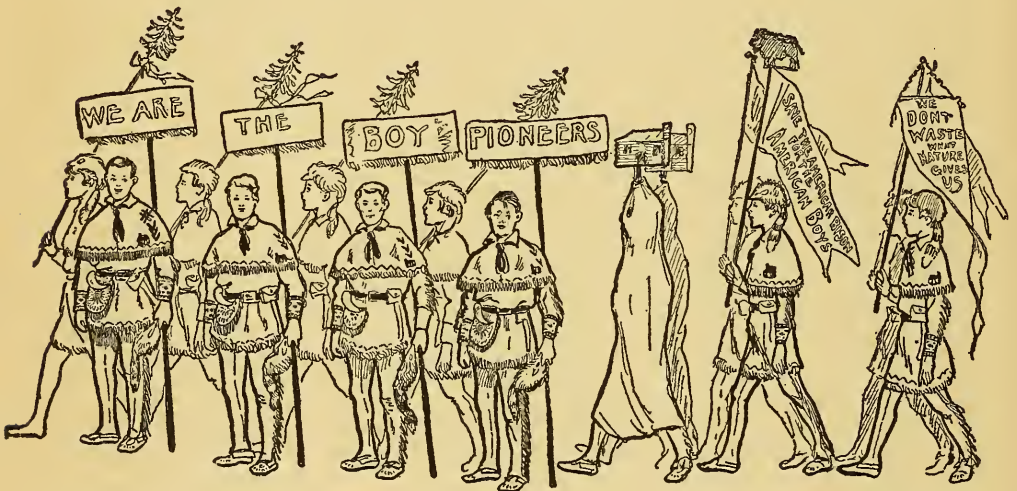 WE ARE
THE
BOY
PIONEERS
SAVE THE AMERICAN BISON
FOR THE
AMERICAN BOYS
WE
DONT
WASTE
WHAT
NATURE
GIVES
US